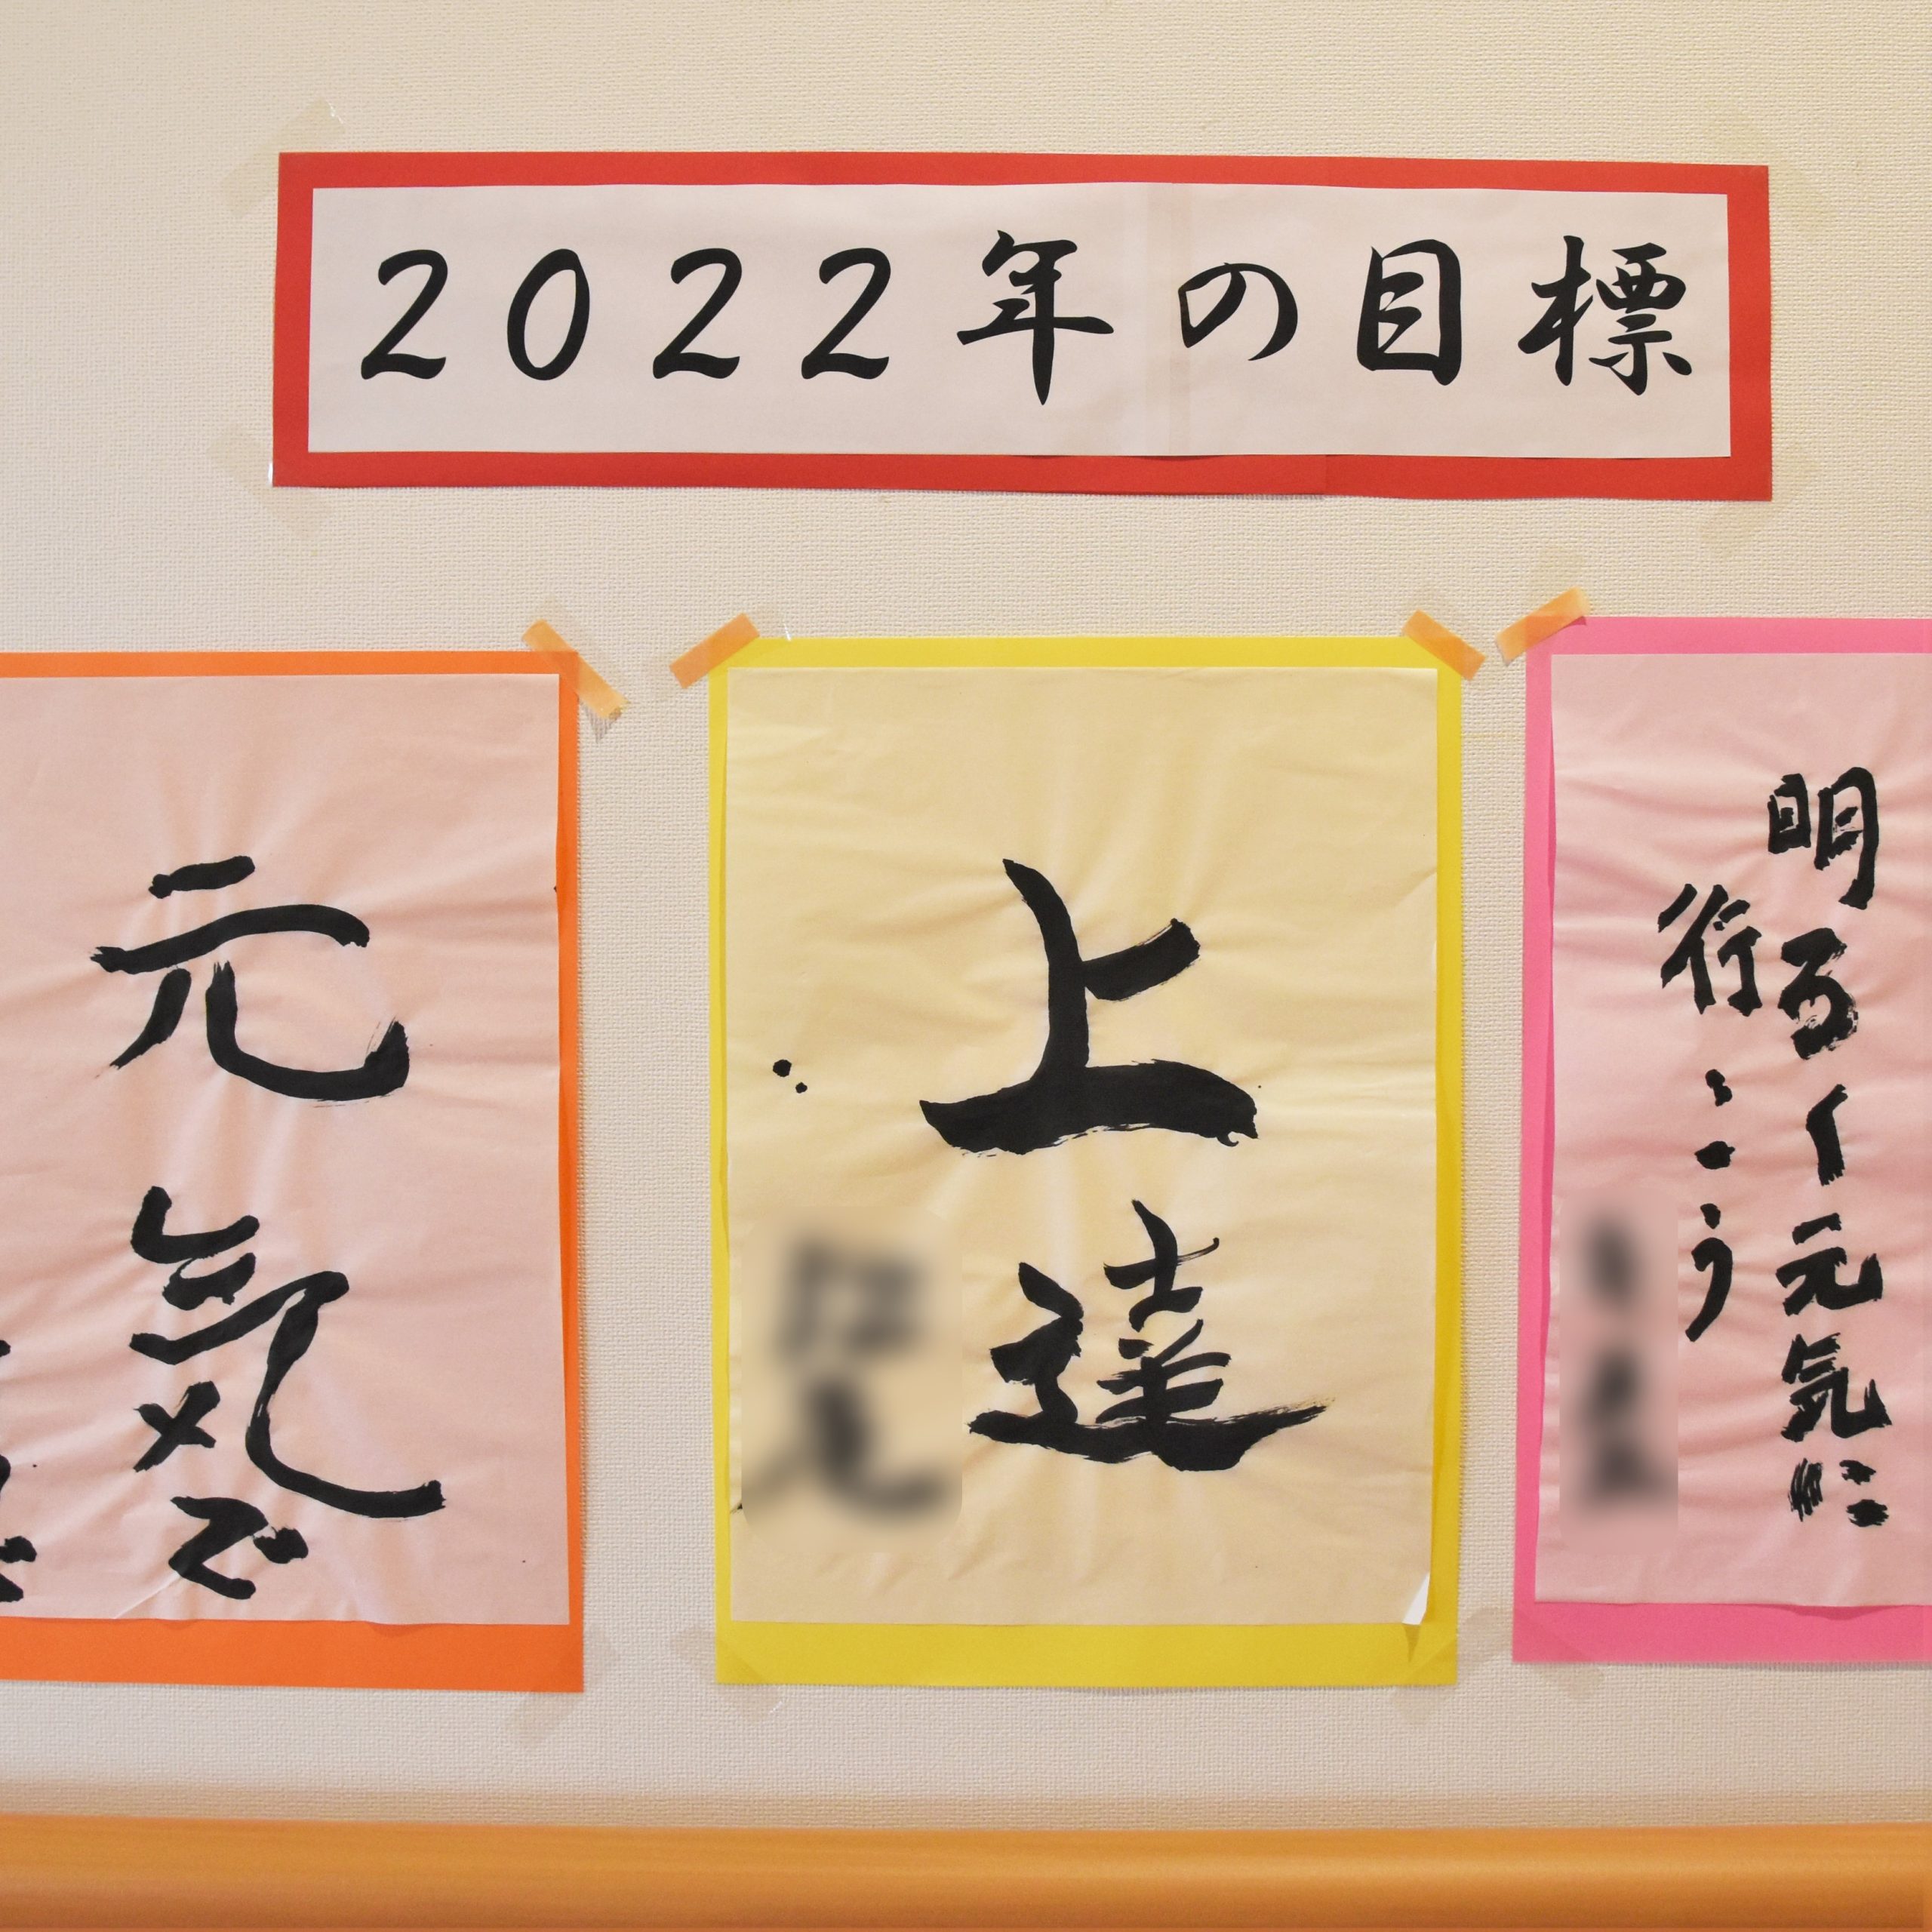 2022年の目標
元気で
上達
明るく元気に
行こう